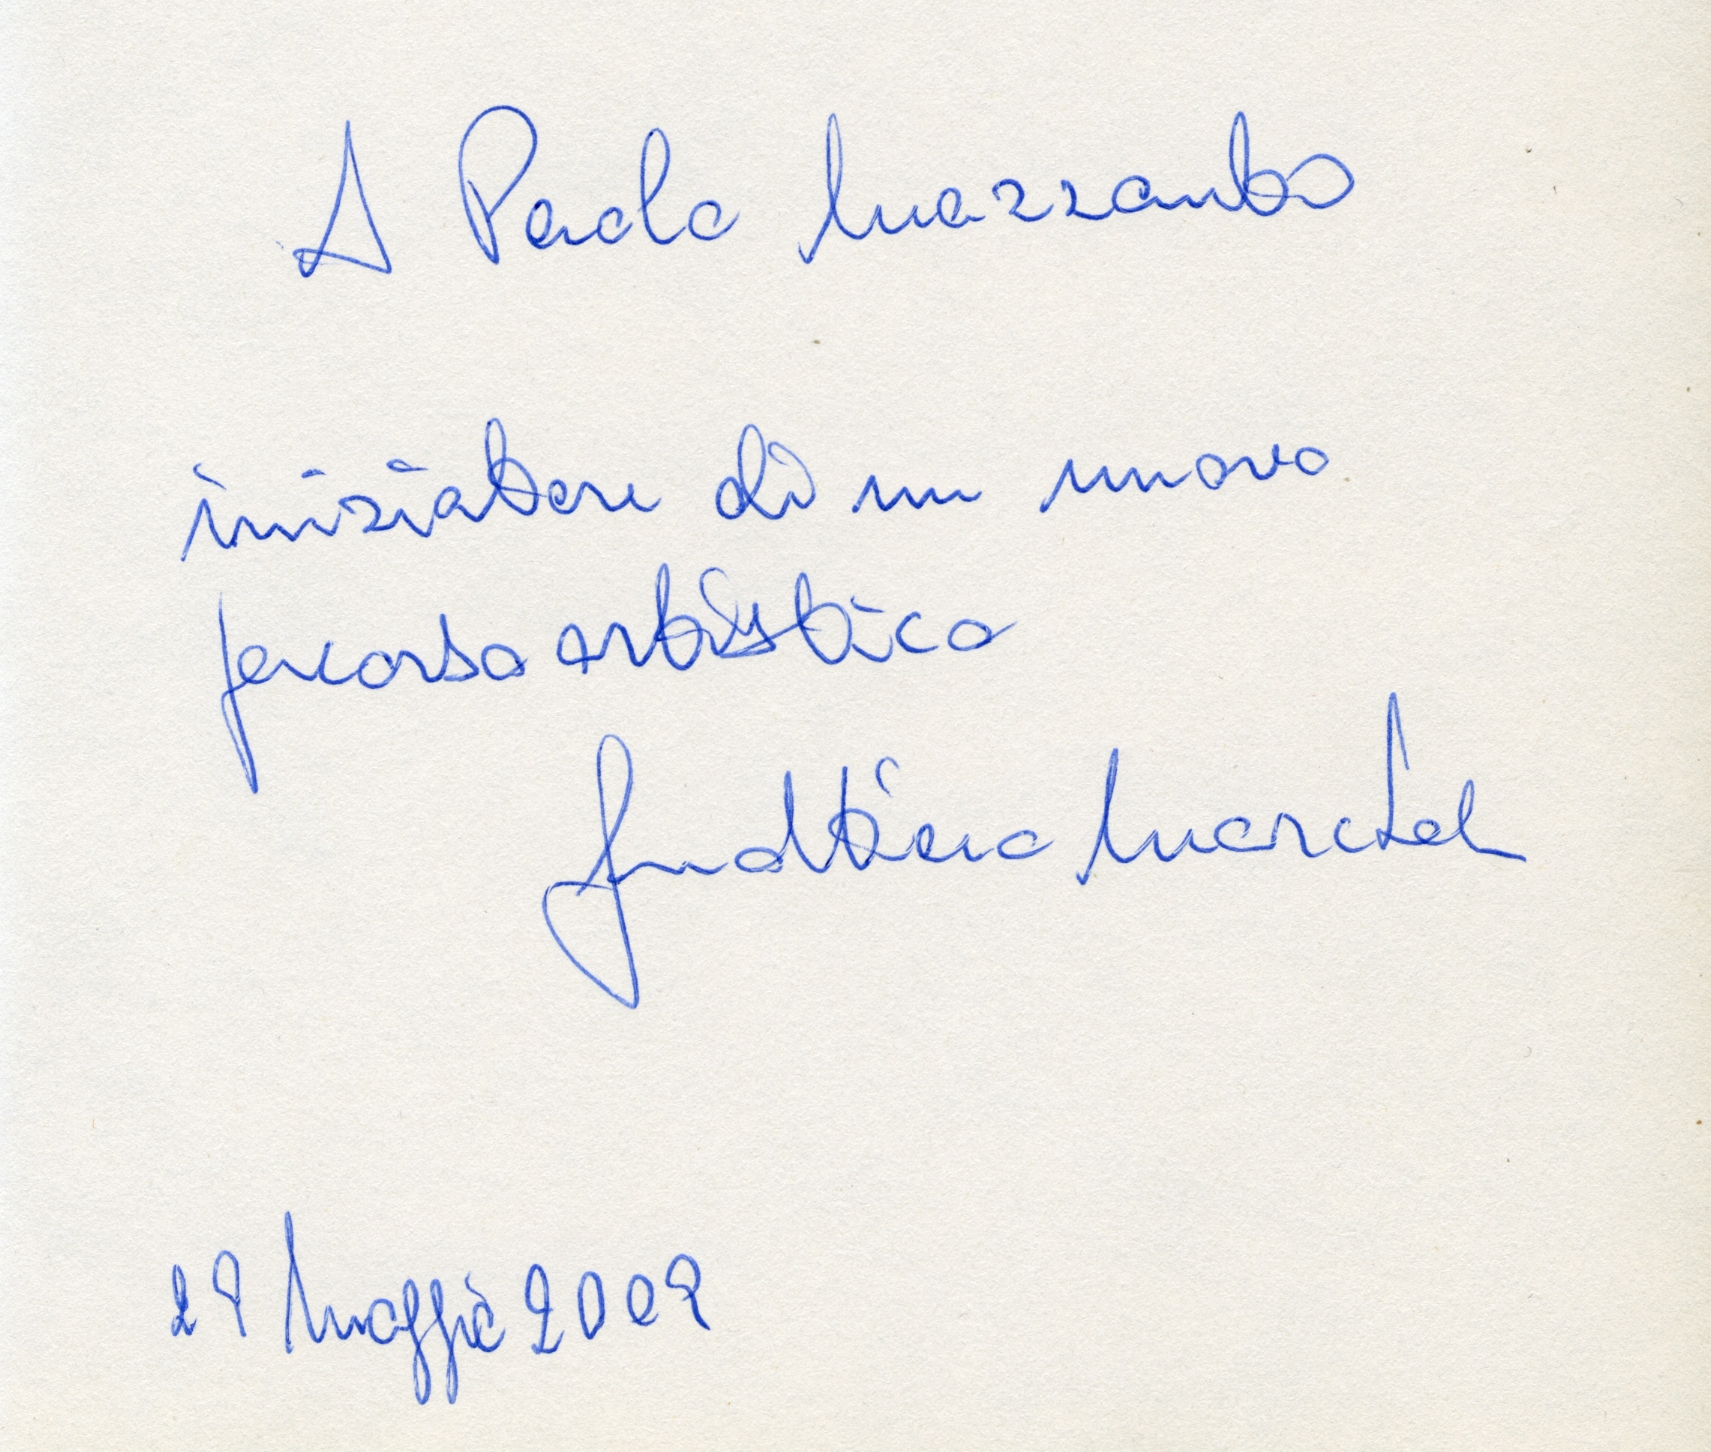 A Paolo Mazzanto
iniziatore di un nuovo
percorso artistico
Gualtiero Marchesi
29 Maggio 2009